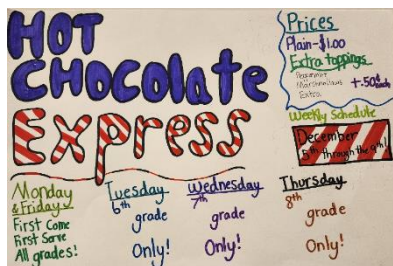 HOT
CHOCOLATE
Express
Prices
Plain-$1.00
Extra toppings
Peppermint
Marshmallows
Extra
+.50¢
each
Weekly Schedule
December
5th through the 9th!
Monday
& Friday
First Come
First Serve
All grades!
Tuesday
6th
grade
Only!
Wednesday
7th
grade
Only!
Thursday
8th
grade
Only!